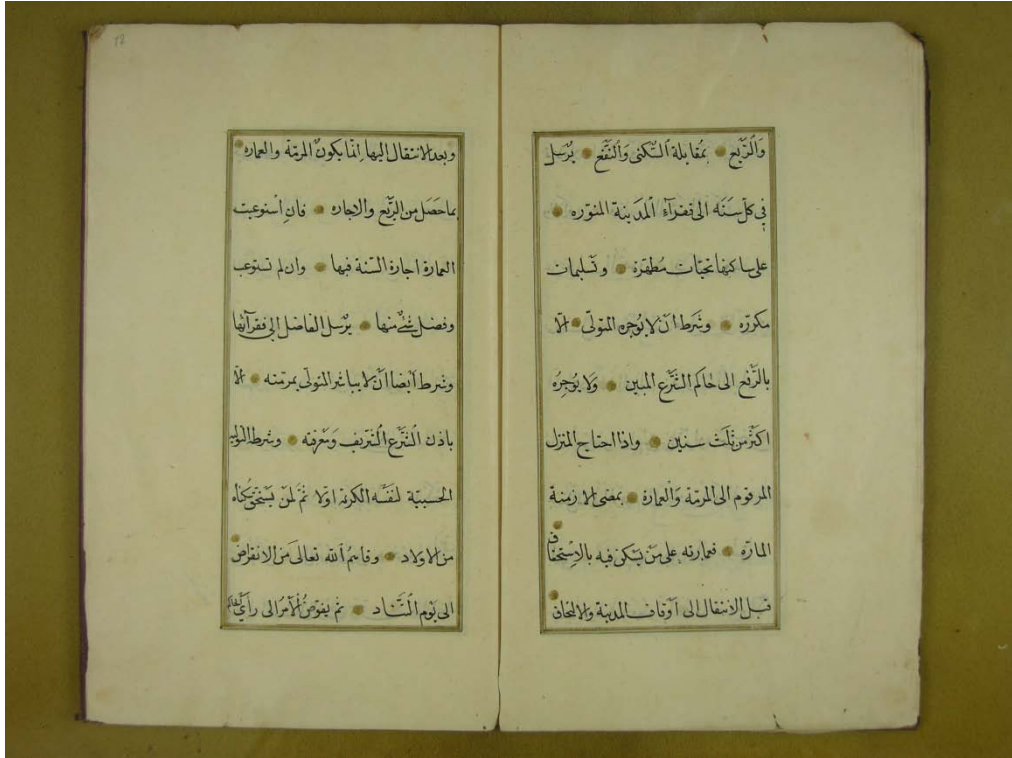 وَالرَّيع بمُقابلة السُّكنى وَالنَّفع يُرْسل
في كلّ سنَه الى فقرآء المَدينة المنوّره
على ساكنها تحيّات مُطهّرة وتسليمات
مكرّره وشرط ان لا يُوجره المتولّى الّا
بالرَّفع الى حاكم الشّرع المبين وَلا يُوجِرُه
اكثر من ثلث سنين واذا احتاج المنزل
المرقوم الى المرمّة وَالعمارة بمضى الازمنة
المارّه فعمارته على مَن يَسكن فيه بالاِستحقاق
قبل الانتقال الى أوقاف المدينة والالحاق
وبعد الانتقال اليها انّما يكونُ المرمّة والعماره
بماحَصَل من الرَّيع والاجاره فانِ اسْتوعبت
العمارة اجارة السّنة فبها وان لم تستوعب
وفضل شئٌ منها يُرْسل الفاضل الى فقرآئها
وشرط ايضا انْ لا يباشر المتولّى بمرمّته الّا
باذن الشّرع الشّريف وَمعْرفته وشرط التولية
الحسبيّة لنفسه الكريمة اوّلا ثمّ لمن يستحقّ سُكناه
من الاولاد وقاهمُ الله تعالىَ من الانقراض
الى يَوم التّناد ثم يفوّضُ الأمرُ الى رأي